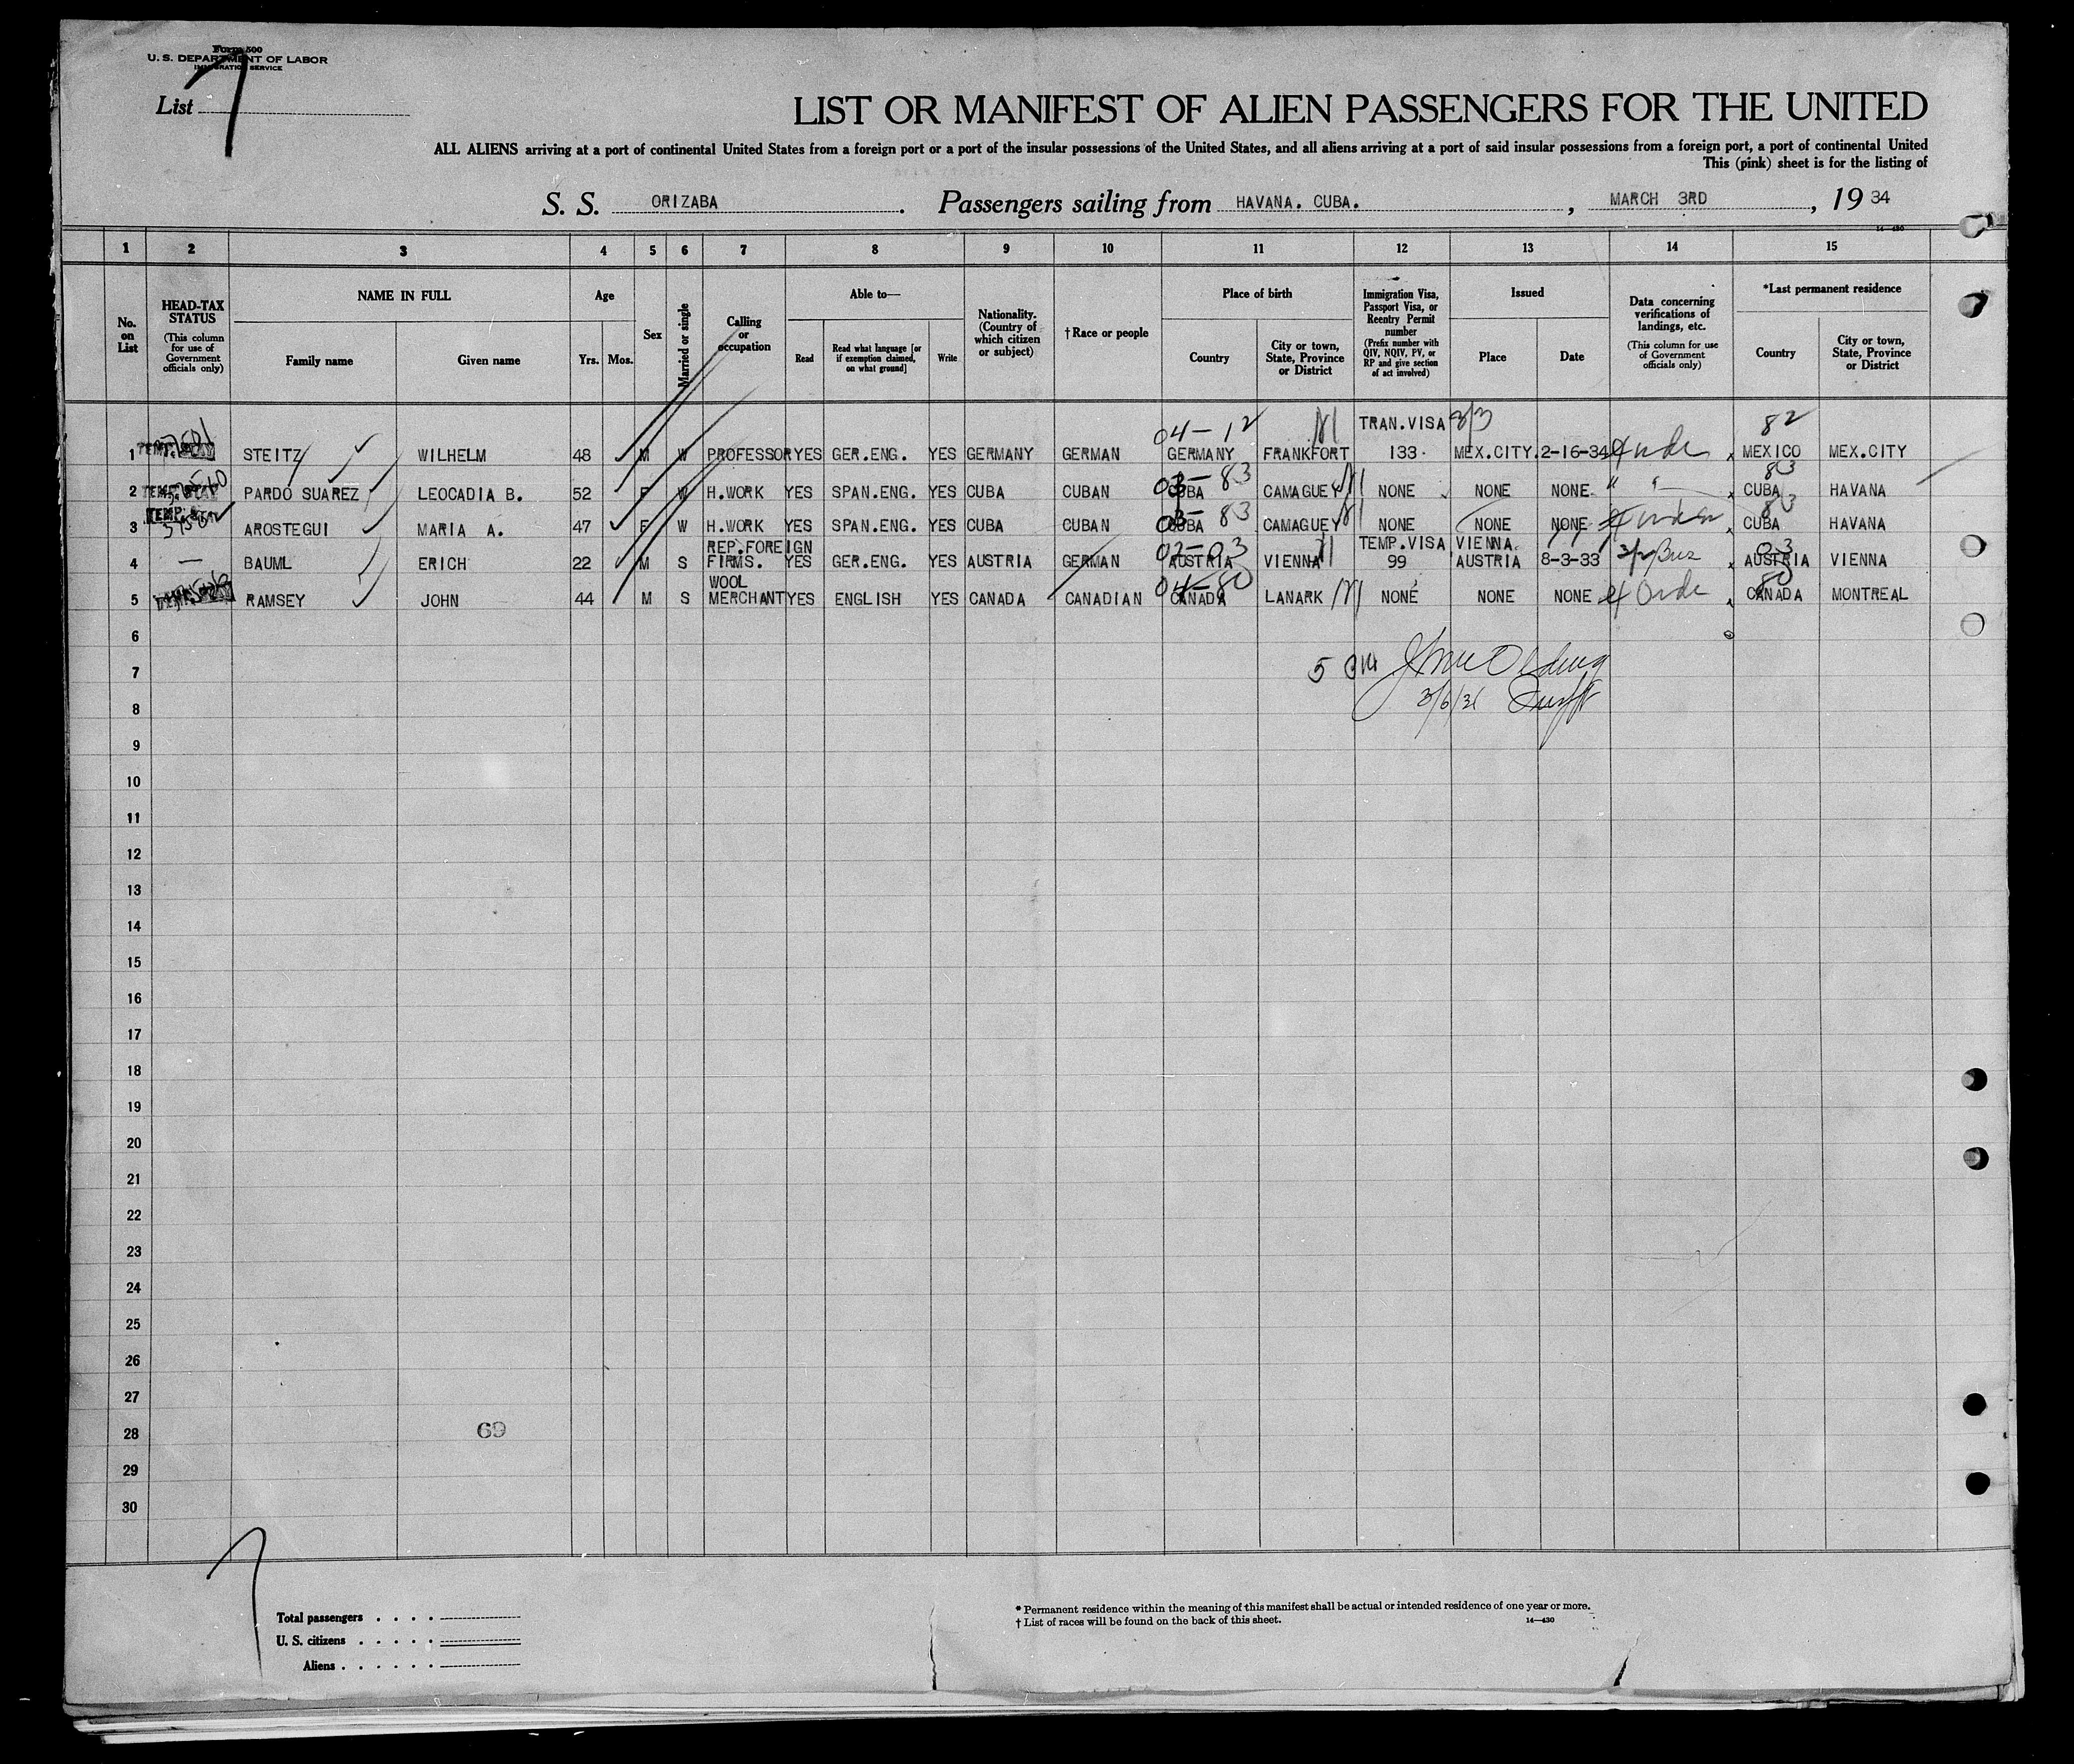 Form 500
U. S. DEPARTMENT OF LABOR
IMMIGRATION SERVICE
List 7
LIST OR MANIFEST OF ALIEN PASSENGERS FOR THE UNITED
ALL ALIENS arriving at a port of continental United States from a foreign port or a port of the insular possessions of the United States, and all aliens arriving at a port of said insular possessions from a foreign port, a port of continental United
This (pink) sheet is for the listing of
S. S. ORIZABA. Passengers sailing from HAVANA. CUBA., MARCH 3RD, 1934
14—430
1 2 3 4 5 6 7 8 9 10 11 12 13 14 15
No. on List
HEAD-TAX STATUS (This column for use of Government officials only)
NAME IN FULL
Family name Given name
Age
Yrs. Mos.
Sex
Married or single
Calling or occupation
Able to—
Read Read what language [or if exemption claimed, on what ground] Write
Nationality. (Country of which citizen or subject)
†Race or people
Place of birth
Country City or town, State, Province or District
Immigration Visa, Passport Visa, or Reentry Permit number (Prefix number with QIV, NQIV, PV, or RP and give section of act involved)
Issued
Place Date
Data concerning verifications of landings, etc. (This column for use of Government officials only)
*Last permanent residence
Country City or town, State, Province or District
04-12 TRAN.VISA 3/3 82
1 STEITZ WILHELM 48 M W PROFESSOR YES GER.ENG. YES GERMANY GERMAN GERMANY FRANKFORT 133. MEX.CITY. 2-16-34 MEXICO MEX.CITY
03-83 83
2 PARDO SUAREZ LEOCADIA B. 52 F W H.WORK YES SPAN.ENG. YES CUBA CUBAN CUBA CAMAGUEY NONE NONE NONE " " CUBA HAVANA
83 83
3 AROSTEGUI MARIA A. 47 F W H.WORK YES SPAN.ENG. YES CUBA CUBAN CUBA CAMAGUEY NONE NONE NONE CUBA HAVANA
REP.FOREIGN 02-03 TEMP.VISA VIENNA. 03
4 — BAUML ERICH 22 M S FIRMS. YES GER.ENG. YES AUSTRIA GERMAN AUSTRIA VIENNA 99 AUSTRIA 8-3-33 AUSTRIA VIENNA
WOOL 04-80 80
5 RAMSEY JOHN 44 M S MERCHANT YES ENGLISH YES CANADA CANADIAN CANADA LANARK NONE NONE NONE CANADA MONTREAL
6
7 5
8
9
10
11
12
13
14
15
16
17
18
19
20
21
22
23
24
25
26
27
28 69
29
30
7
Total passengers . . . .
U. S. citizens . . . . .
Aliens . . . . . .
* Permanent residence within the meaning of this manifest shall be actual or intended residence of one year or more.
† List of races will be found on the back of this sheet. 14—430